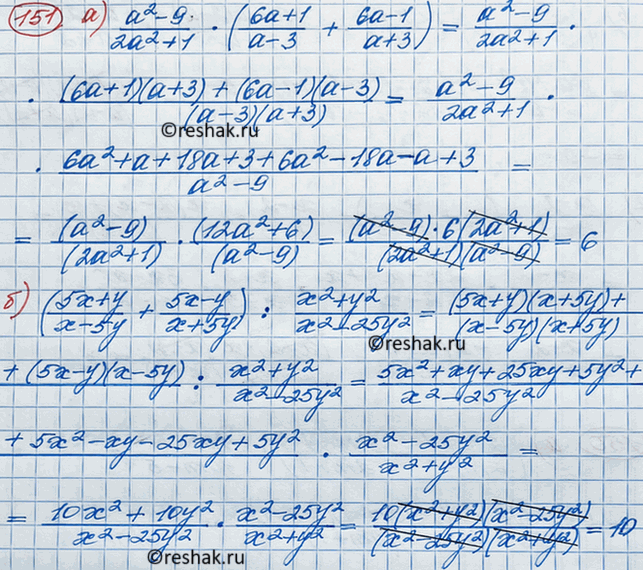 151 а) (a²-9)/(2a²+1) · ((6a+1)/(a-3) + (6a-1)/(a+3)) = (a²-9)/(2a²+1) ·
· ((6a+1)(a+3) + (6a-1)(a-3))/((a-3)(a+3)) = (a²-9)/(2a²+1) ·
©reshak.ru
· (6a²+a+18a+3+6a²-18a-a+3)/(a²-9) =
= (a²-9)/(2a²+1) · (12a²+6)/(a²-9) = ((a²-9)·6(2a²+1))/((2a²+1)(a²-9)) = 6
б) ((5x+y)/(x-5y) + (5x-y)/(x+5y)) : (x²+y²)/(x²-25y²) = ((5x+y)(x+5y)+)/((x-5y)(x+5y))
©reshak.ru
+(5x-y)(x-5y) : (x²+y²)/(x²-25y²) = (5x²+xy+25xy+5y²+)/(x²-25y²)
+5x²-xy-25xy+5y² · (x²-25y²)/(x²+y²) =
= (10x²+10y²)/(x²-25y²) · (x²-25y²)/(x²+y²) = (10(x²+y²)(x²-25y²))/((x²-25y²)(x²+y²)) = 10
©reshak.ru